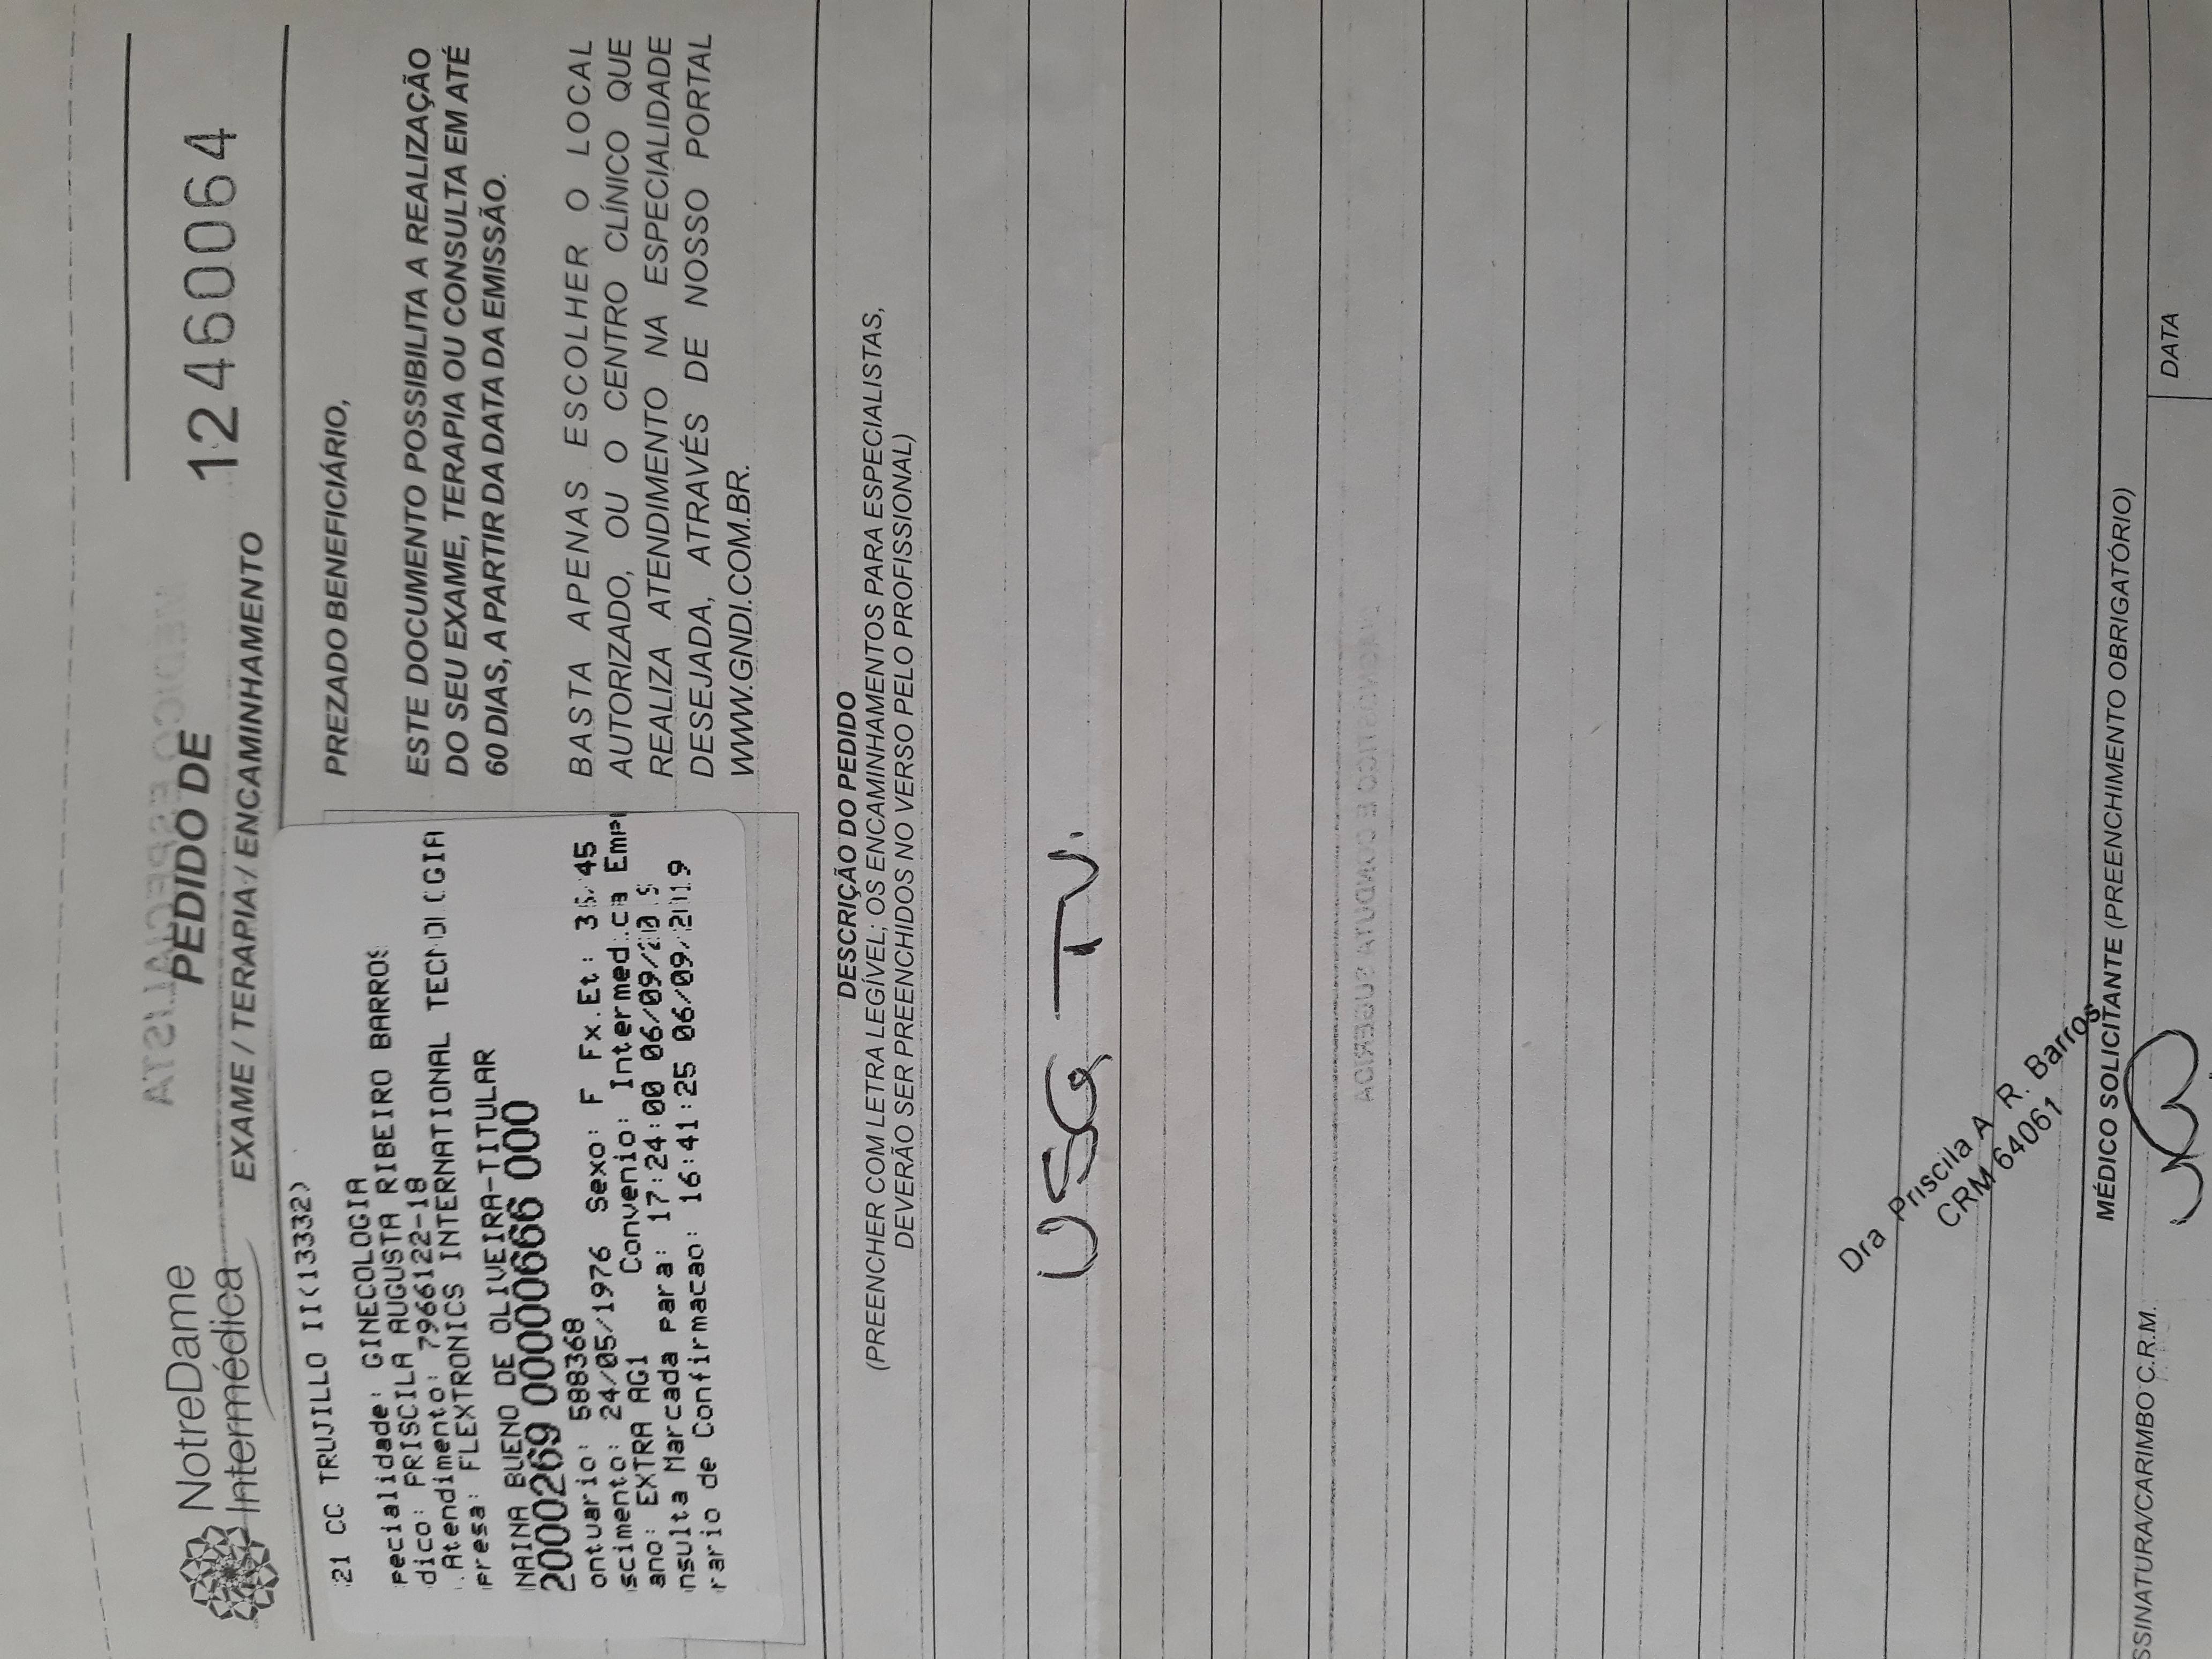 NotreDame
Intermédica
PEDIDO DE
EXAME / TERAPIA / ENCAMINHAMENTO
12460064
21 CC TRUJILLO II(13332)
pecialidade: GINECOLOGIA
dico: PRISCILA AUGUSTA RIBEIRO BARROS
.Atendimento: 7966122-18
presa: FLEXTRONICS INTERNATIONAL TECNOLOGIA
NAINA BUENO DE OLIVEIRA-TITULAR
2000269 00000666 000
ontuario: 588368
scimento: 24/05/1976 Sexo: F Fx.Et: 36/45
ano: EXTRA AG1 Convenio: Intermedica Emp
nsulta Marcada para: 17:24:00 06/09/2019
rario de Confirmacao: 16:41:25 06/09/2019
PREZADO BENEFICIÁRIO,
ESTE DOCUMENTO POSSIBILITA A REALIZAÇÃO
DO SEU EXAME, TERAPIA OU CONSULTA EM ATÉ
60 DIAS, A PARTIR DA DATA DA EMISSÃO.
BASTA APENAS ESCOLHER O LOCAL
AUTORIZADO, OU O CENTRO CLÍNICO QUE
REALIZA ATENDIMENTO NA ESPECIALIDADE
DESEJADA, ATRAVÉS DE NOSSO PORTAL
WWW.GNDI.COM.BR.
DESCRIÇÃO DO PEDIDO
(PREENCHER COM LETRA LEGÍVEL; OS ENCAMINHAMENTOS PARA ESPECIALISTAS,
DEVERÃO SER PREENCHIDOS NO VERSO PELO PROFISSIONAL)
USG TV.
Dra Priscila A R. Barros
CRM 64061
MÉDICO SOLICITANTE (PREENCHIMENTO OBRIGATÓRIO)
SSINATURA/CARIMBO C.R.M.
DATA